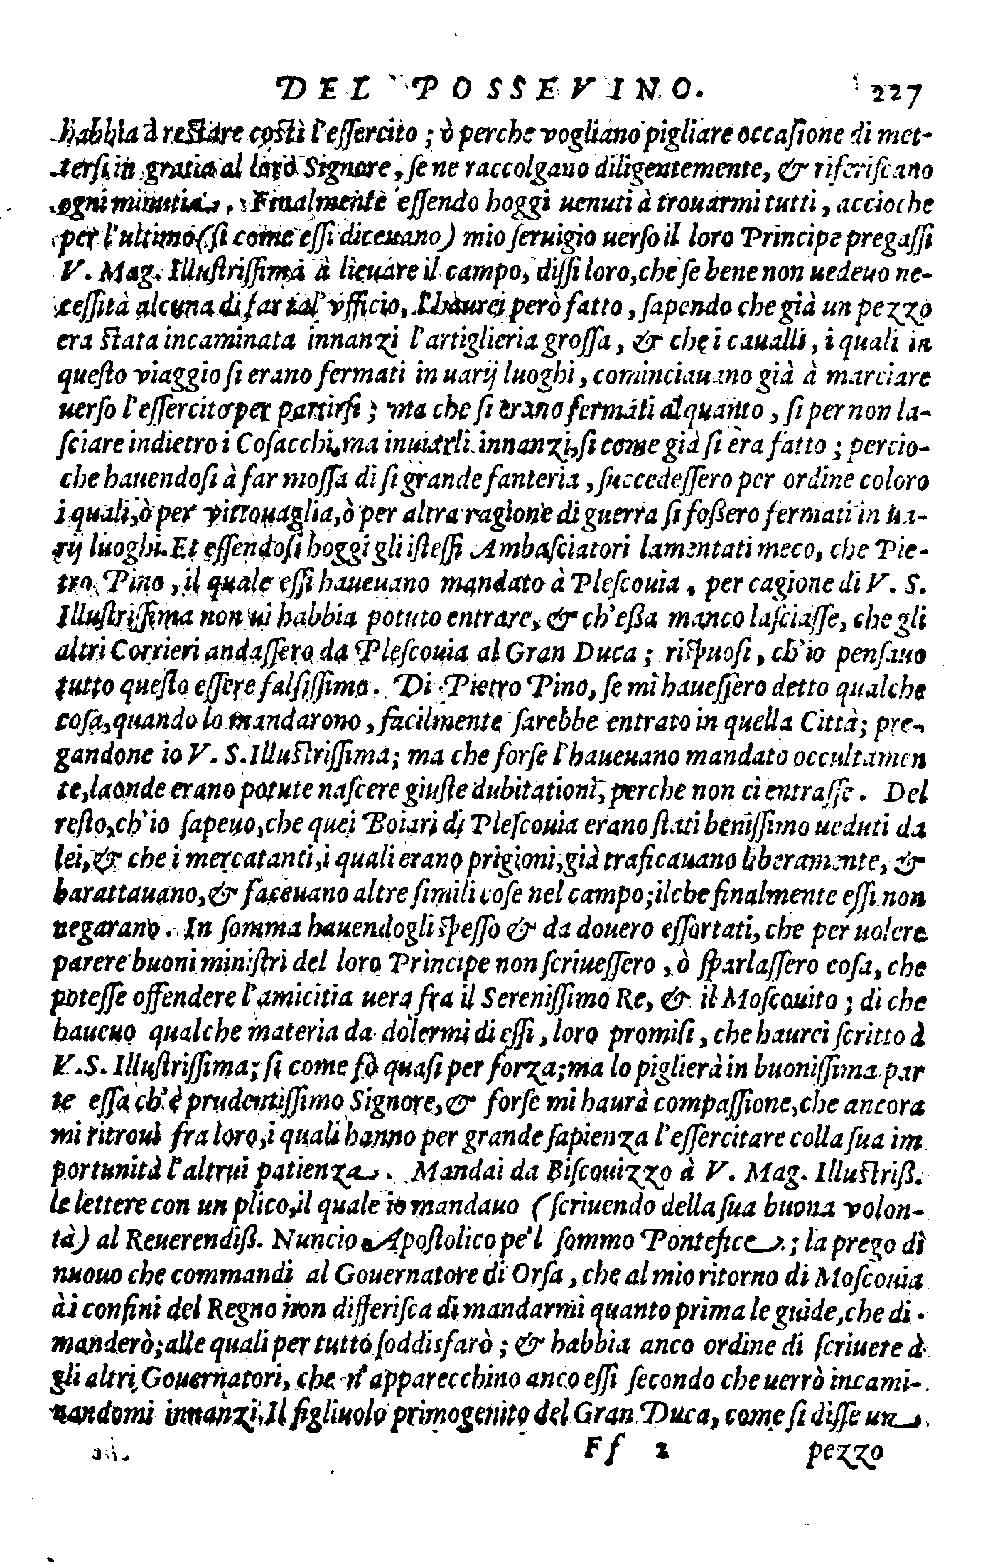 DEL POSSEVINO. 227
habbia à restare costì l'essercito; ò perche vogliano pigliare occasione di met-
tersi in gratia al loro Signore, se ne raccolgano diligentemente, & riferiscano
ogni minutia. Finalmente essendo hoggi uenuti à trouarmi tutti, accioche
per l'ultimo (si come essi diceuano) mio seruigio uerso il loro Principe pregassi
V. Mag. Illustrissima à leuare il campo, dissi loro, che se bene non uedeuo ne-
cessità alcuna di far tal' vfficio, l'haurei però fatto, sapendo che già un pezzo
era stata incaminata innanzi l'artiglieria grossa, & che i caualli, i quali in
questo viaggio si erano fermati in uarij luoghi, cominciauano già à marciare
uerso l'essercito per partirsi; ma che si erano fermati alquanto, si per non la-
sciare indietro i Cosacchi, ma inuiarli innanzi, si come già si era fatto; percio-
che hauendosi à far mossa di sì grande fanteria, succedessero per ordine coloro
i quali, ò per vittouaglia, ò per altra ragione di guerra si foßero fermati in ua-
rij luoghi. Et essendosi hoggi gli istessi Ambasciatori lamentati meco, che Pie-
tro Pino, il quale essi haueuano mandato à Plescouia, per cagione di V. S.
Illustrissima non ui habbia potuto entrare, & ch'eßa manco lasciasse, che gli
altri Corrieri andassero da Plescouia al Gran Duca; rispuosi, ch'io pensauo
tutto questo essere falsissimo. Di Pietro Pino, se mi hauessero detto qualche
cosa, quando lo mandarono, facilmente sarebbe entrato in quella Città; pre-
gandone io V. S. Illustrissima; ma che forse l'haueuano mandato occultamen
te, laonde erano potute nascere giuste dubitationi, perche non ci entrasse. Del
resto, ch'io sapeuo, che quei Boiari di Plescouia erano stati benissimo ueduti da
lei, & che i mercatanti, i quali erano prigioni, già traficauano liberamente, &
barattauano, & faceuano altre simili cose nel campo; ilche finalmente essi non
negarano. In somma hauendogli spesso & da douero essortati, che per uolere
parere buoni ministri del loro Principe non scriuessero, ò sparlassero cosa, che
potesse offendere l'amicitia uera fra il Serenissimo Re, & il Moscouito; di che
haueuo qualche materia da dolermi di essi, loro promisi, che haurei scritto à
V. S. Illustrissima; si come fò quasi per forza; ma lo piglierà in buonissima par
te essa ch'è prudentissimo Signore, & forse mi haurà compassione, che ancora
mi ritroui fra loro, i quali hanno per grande sapienza l'essercitare colla sua im
portunità l'altrui patienza. Mandai da Biscouizzo à V. Mag. Illustriß.
le lettere con un plico, il quale io mandauo (scriuendo della sua buona volon-
tà) al Reuerendiß. Nuncio Apostolico pe'l sommo Pontefice; la prego di
nuouo che commandi al Gouernatore di Orsa, che al mio ritorno di Moscouia
ài confini del Regno non differisca di mandarmi quanto prima le guide, che di-
manderò; alle quali per tutto soddisfarò; & habbia anco ordine di scriuere à
gli altri Gouernatori, che s'apparecchino anco essi secondo che uerrò incami-
nandomi innanzi. Il figliuolo primogenito del Gran Duca, come si disse un
Ff 2 pezzo